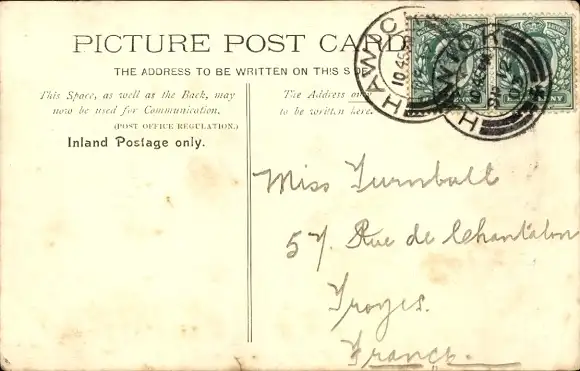 PICTURE POST CARD
THE ADDRESS TO BE WRITTEN ON THIS SIDE
This Space, as well as the Back, may
now be used for Communication.
(POST OFFICE REGULATION.)
Inland Postage only.
The Address only
to be written here.
HAWICK
10 45
HAWICK
Miss Turnbull
57. Rue de Chantalon
Troyes.
France.